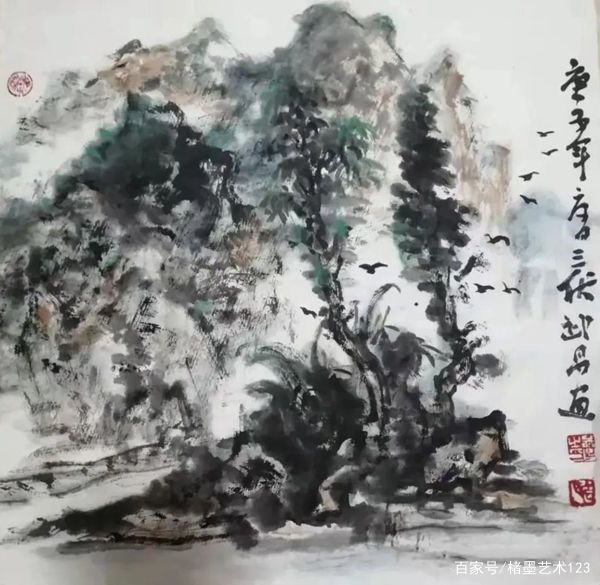 庚子年庚日三伏武昌画
百家号/楮墨艺术123